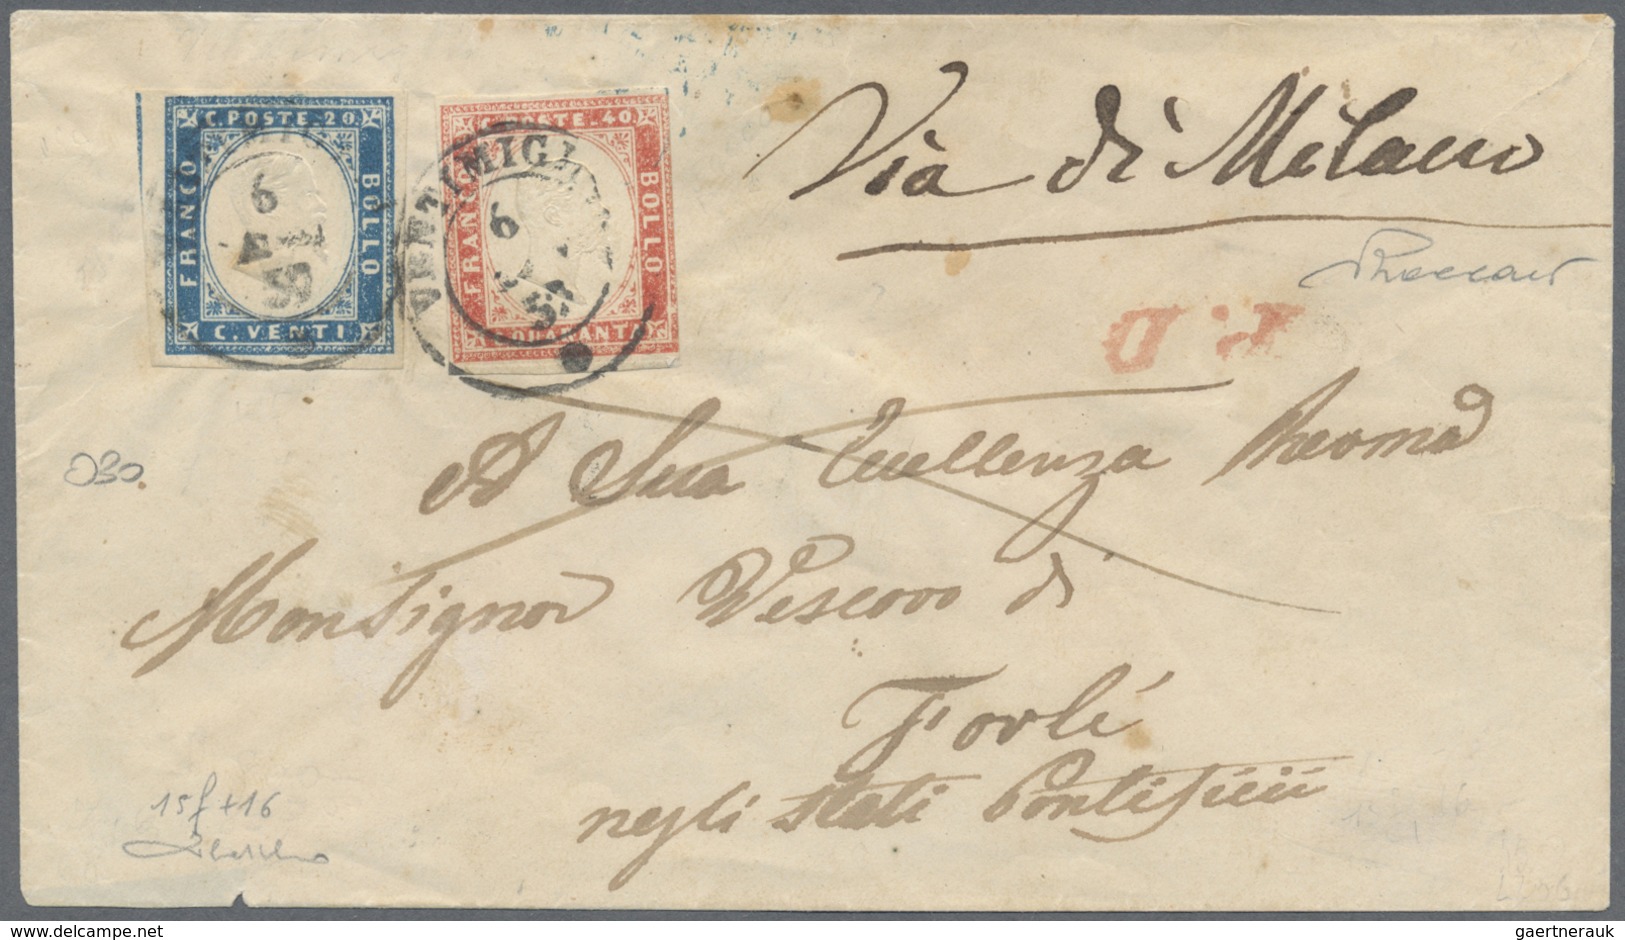 C. POSTE. 20
FRANCO
BOLLO
C. VENTI
C. POSTE. 40
FRANCO
BOLLO
QUARANTA
VENTIMIGLIA
6
59
6
59
Via di Milano
P.D.
A Sua Eccellenza Revma
Monsignor Vescovo di
Forlí
negli stati Pontificii
15f+16
www.delcampe.net
gaertnerauk